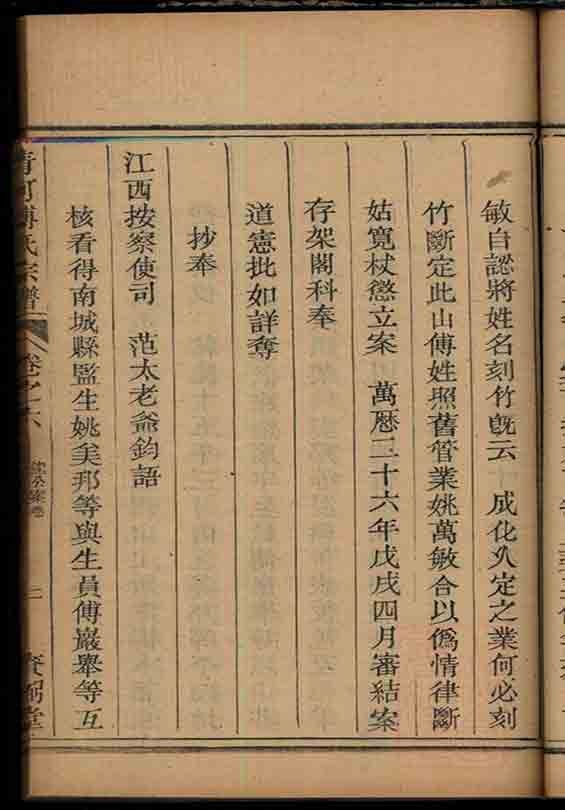 敏自認將姓名刻竹旣云成化久定之業何必刻
竹斷定此山傅姓照舊管業姚萬敏合以僞情律斷
姑寛杖懲立案 萬曆二十六年戊戌四月審結案
存架閣科奉
道憲批如詳奪
抄奉
江西按察使司 范太老爺鈞語
核看得南城縣監生姚矣邦等與生員傅巖舉等互
河傅氏宗譜 卷之六 二